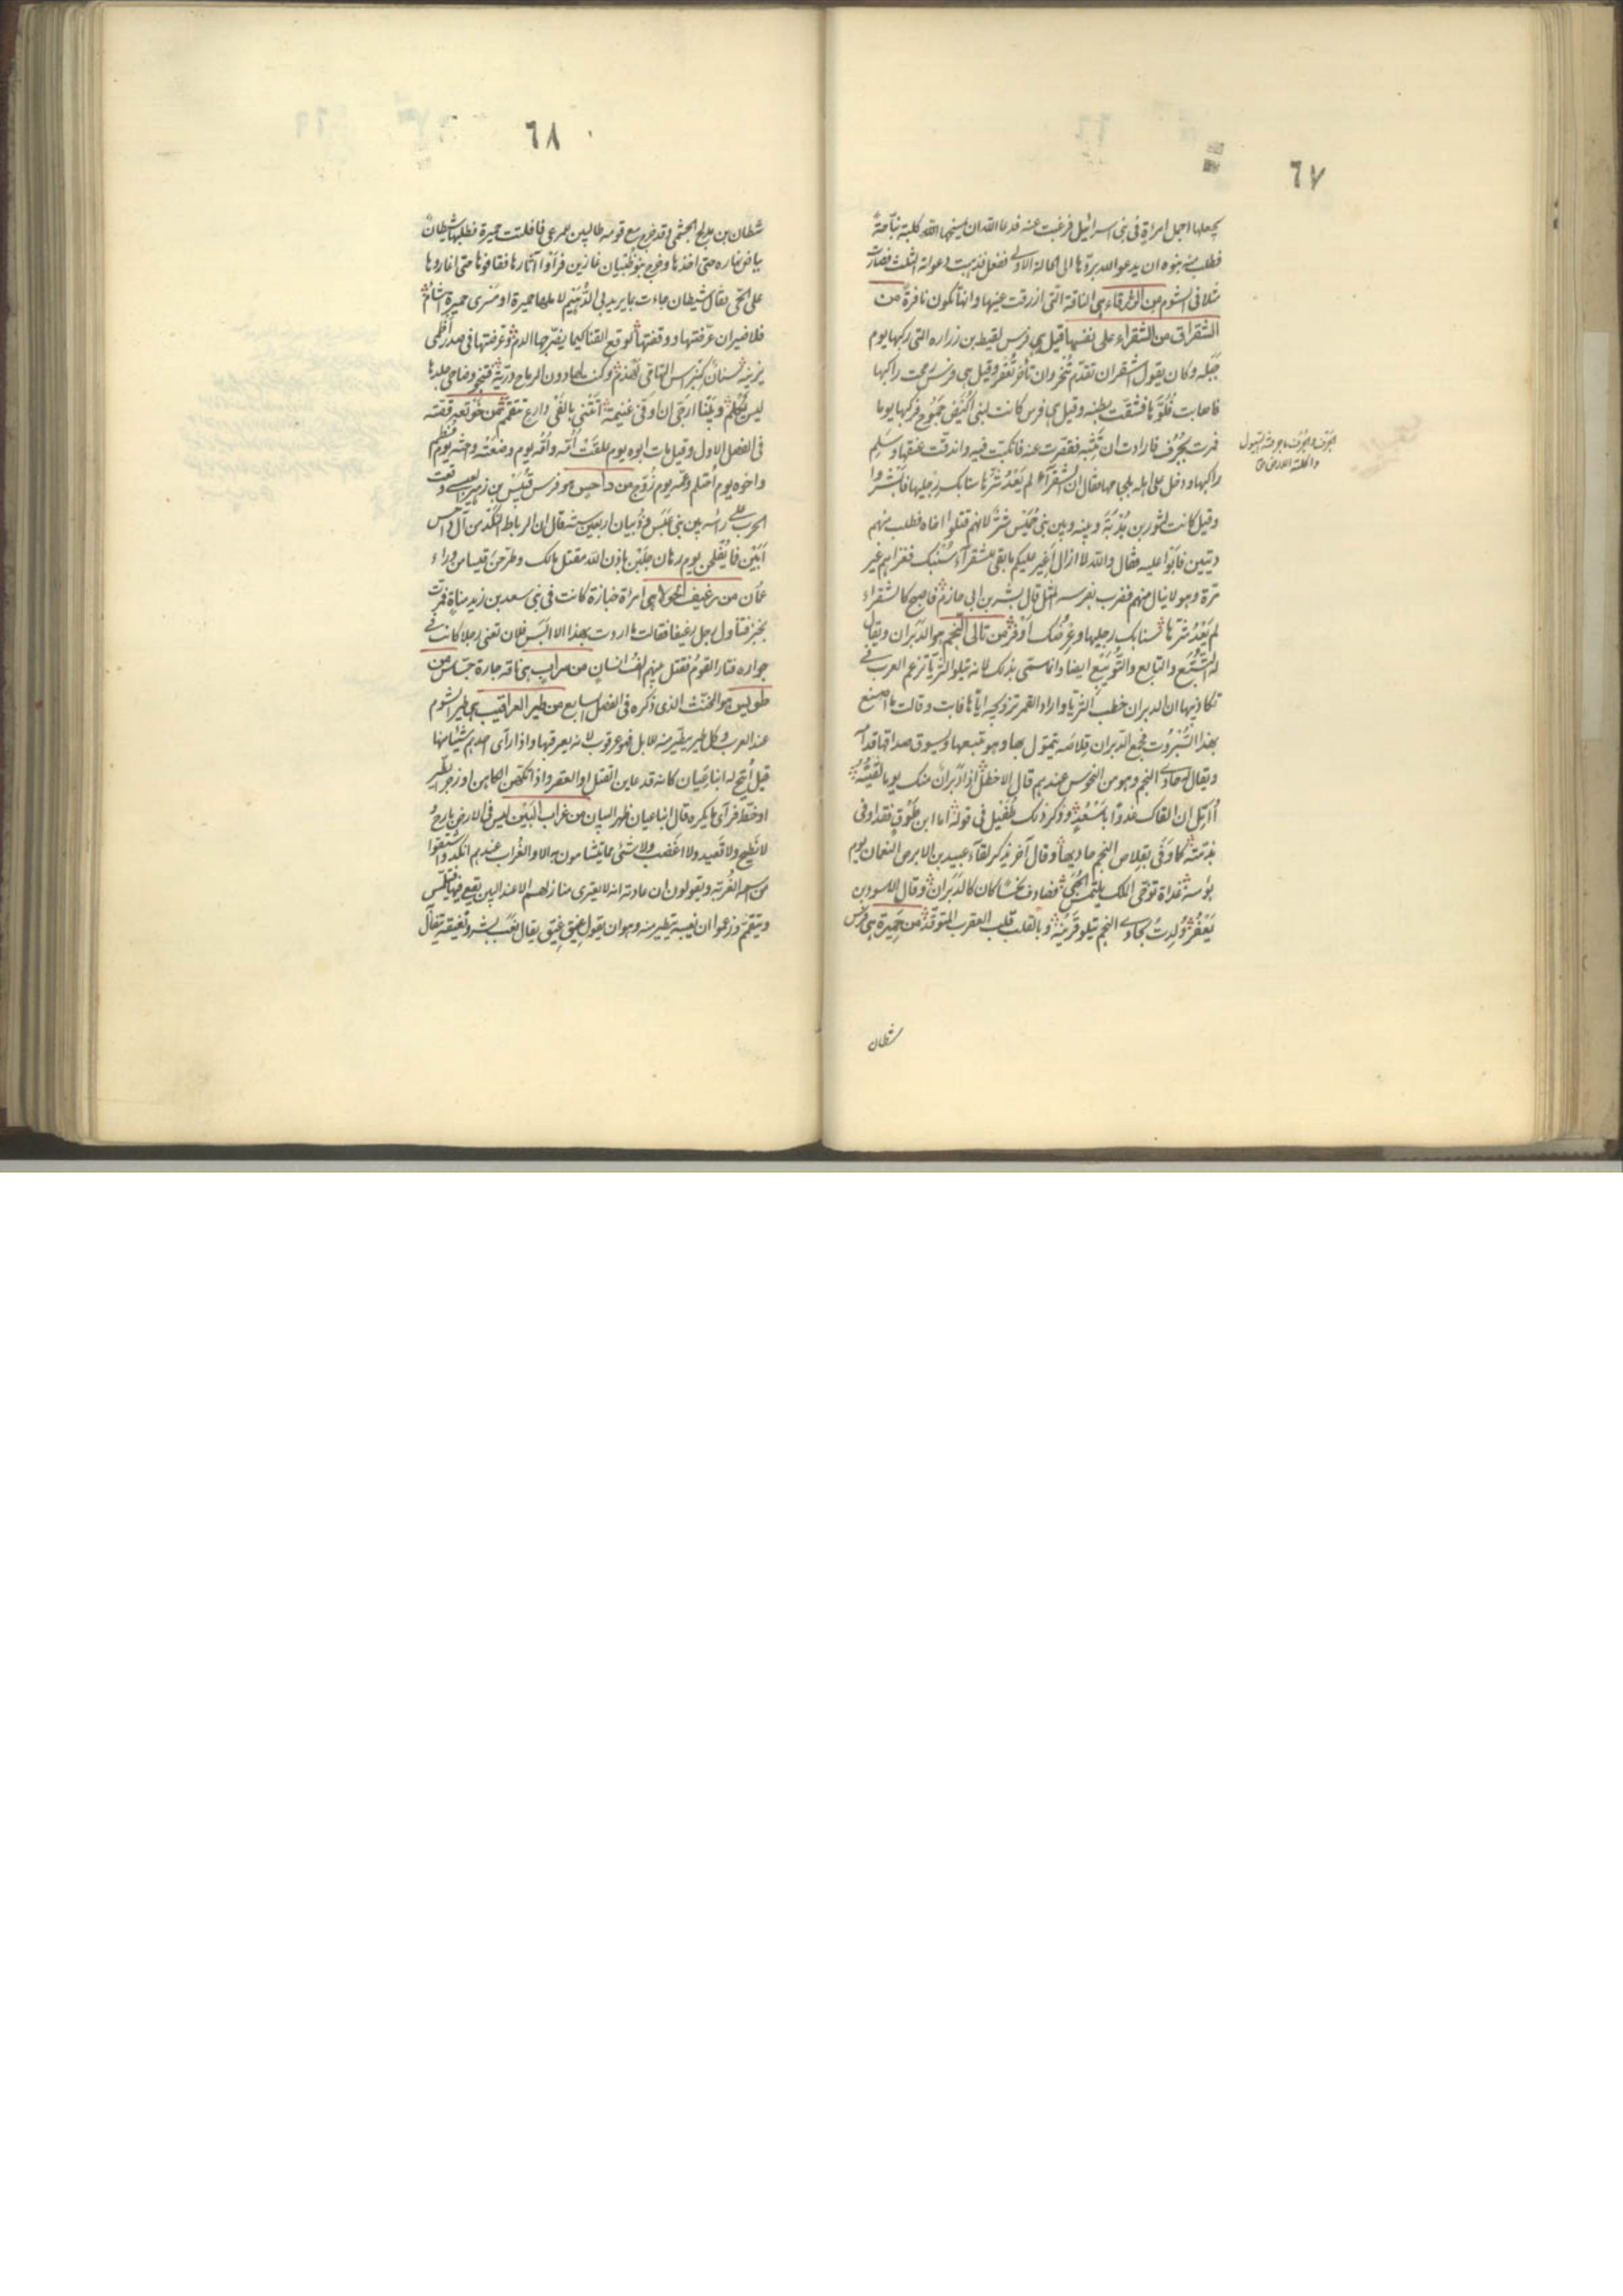 ٦٧
يجعلها اجمل امراة فى بنى اسرائيل فرغبت عنه فدعا الله ان يمسخها الله كلبة نباحة
فطلب منه بنوه ان يدعو الله بردّها الى الحالة الاولى ففعل فذهبت دعواته الثلث فصارت
مثلا فى الشوم من الزرقاء هى الناقة التى ازرقت عينها وانها تكون نافرة من
الشقراق من الشقراء على نفسها قيل هى فرس لقيط بن زراره التى ركبها يوم
جبله وكان يقول اشقر ان تقدم تنحر وان تأخر تعقر وقيل هى فرس رمحت راكبها
فاصابت فلوّها فشقت بطنه وقيل هى فرس كانت لبنى جموح فركبها يوما
فمرت بجرف فارادت ان تثبه فقصرت عنه فانكبت فيه واندقت عنقها وسلم
راكبها ودخل على اهله بلجامها فقال ان الشقرآء لم يَعْدُ شرّها سنابك رجليها فابشروا
وقيل كانت لثور بن هدبة وبينه وبين بنى شرّ لانهم قتلوا اخاه فطلب منهم
ديتين فابوا عليه فقال والله لا ازال اغير عليكم ما بقى للشقرآء سنبك فغزاهم غير
مرة وهو لا ينال منهم فضرب بفرسه المثل قال بشر بن ابى خازم فاصبح كالشقراء
لم يَعْدُ شرّها سنابك رجليها وعرضك اوفر من تالى النجم هو الدبران ويقال
له التبّع والتابع والتويبع ايضا وانما سمى بذلك لانه يتلو الثريا تزعم العرب فى
تكاذيبها ان الدبران خطب الثريا واراد القمر تزويجه اياها فابت وقالت ما اصنع
بهذا السبروت فجمع الدبران قلاصه يتموّل بها وهو يتبعها ويسوق صداقها قدامه
ويقال له حادى النجم وهو من النحوس عندهم قال الاخطل اذا دبران منك يوما لقيته
أؤمّل ان القاك غدوا باسعد وذكر ذلك طفيل فى قوله اما ابن طوق فقد اوفى
بذمته كما وفى بقلاص النجم حاديها وقال آخر يذكر لقاء عبيد بن الابرص النعمان يوم
بؤسه غداة توخى الملك يلتمس فصادف نحسا كان كالدبران وقال الاسود بن
يَعْفُر وُلِدتُ بحادى النجم يتلو قرينه وبالقلب قلب العقرب المتوقد من حميرة هى فرس
شطان
٦٨
شطان بن مدلج الجشمى وقد خرج مع قومه طالبين للمرعى فافلتت حميرة فطلبها شيطان
بياض نهاره حتى اخذها وخرج بنو ذبيان غازين فرأوا آثارها فقافوها حتى اغاروا
على الحى فقال شيطان جاءت بما يربد بى الدهيم لاهلها حميرة او مسرى حميرة اشأم
فلا ضير ان عرّفتها ووقفتها لوقع القنا كيما يضرجها الدم وعرضتها فى صدر اظمى
يزينه سنان كنبراس النهامى لهذم وكنت لها دون الرماح دريئة فتنجو وضاحى جلدها
ليس يكلم وبينا ارجى ان اوفى غنيمة اتتنى بالفى دارع يتقمم من خوتعه قصته
فى الفصل الاول وقيل مات ابوه يوم علقت امّه وامّه يوم وضعته وجدته يوم فُطم
واخوه يوم احتلم وعمه يوم زُوّج من داحس هو فرس قيس بن زهير العبسى وقعت
الحرب على راسه بين بنى عبس وذبيان اربعين سنة قال ان الرباط النكد من آل داحس
ابين فما يُفلحن يوم رهان جلبن باذن الله مقتل مالك وطرحن قيسا من وراء
عُمان من رغيف الحولاء هى امراة خبازة كانت فى بنى سعد بن زيد مناة فمرت
بخبز فتناول رجل رغيفا فقالت ما اردت بهذا الا ابس فلان تعنى رجلا كانت فى
جواره فثار القوم فقتل منهم الف انسان من سراب هى ناقة جارة جساس من
طويس هو المخنث الذى ذكره فى الفصل السابع من طير العراقيب هى طير الشوم
عند العرب وكل طير يتطير منه للابل فهو عرقوب لانه يعرقبها واذا رآى احدهم شيئا منها
قيل أُتيح له ابنا عيان كانه قد عاين القتل او العقر واذا تكهن الكاهن او زجر الطير
او خط فرآى ما يكره قال ابنا عيان ظهر البيان من غراب البَيْن ليس فى الارض بارح
لا نطيح ولا قعيد ولا اعضب ولا شئ مما يتشامون به الا والغراب عندهم انكد واشتقوا
من اسمه الغربة ويقولون ان عادته انه لا يعترى منازلهم الا عند البين يقع فيها يتلمس
ويتقمم وزعموا ان نعيبه يتطير منه وهو ان يقول غيق غيق يقال نعب بشر ونغيقه يتفأل